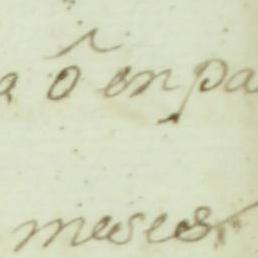 a ô en pa
meses